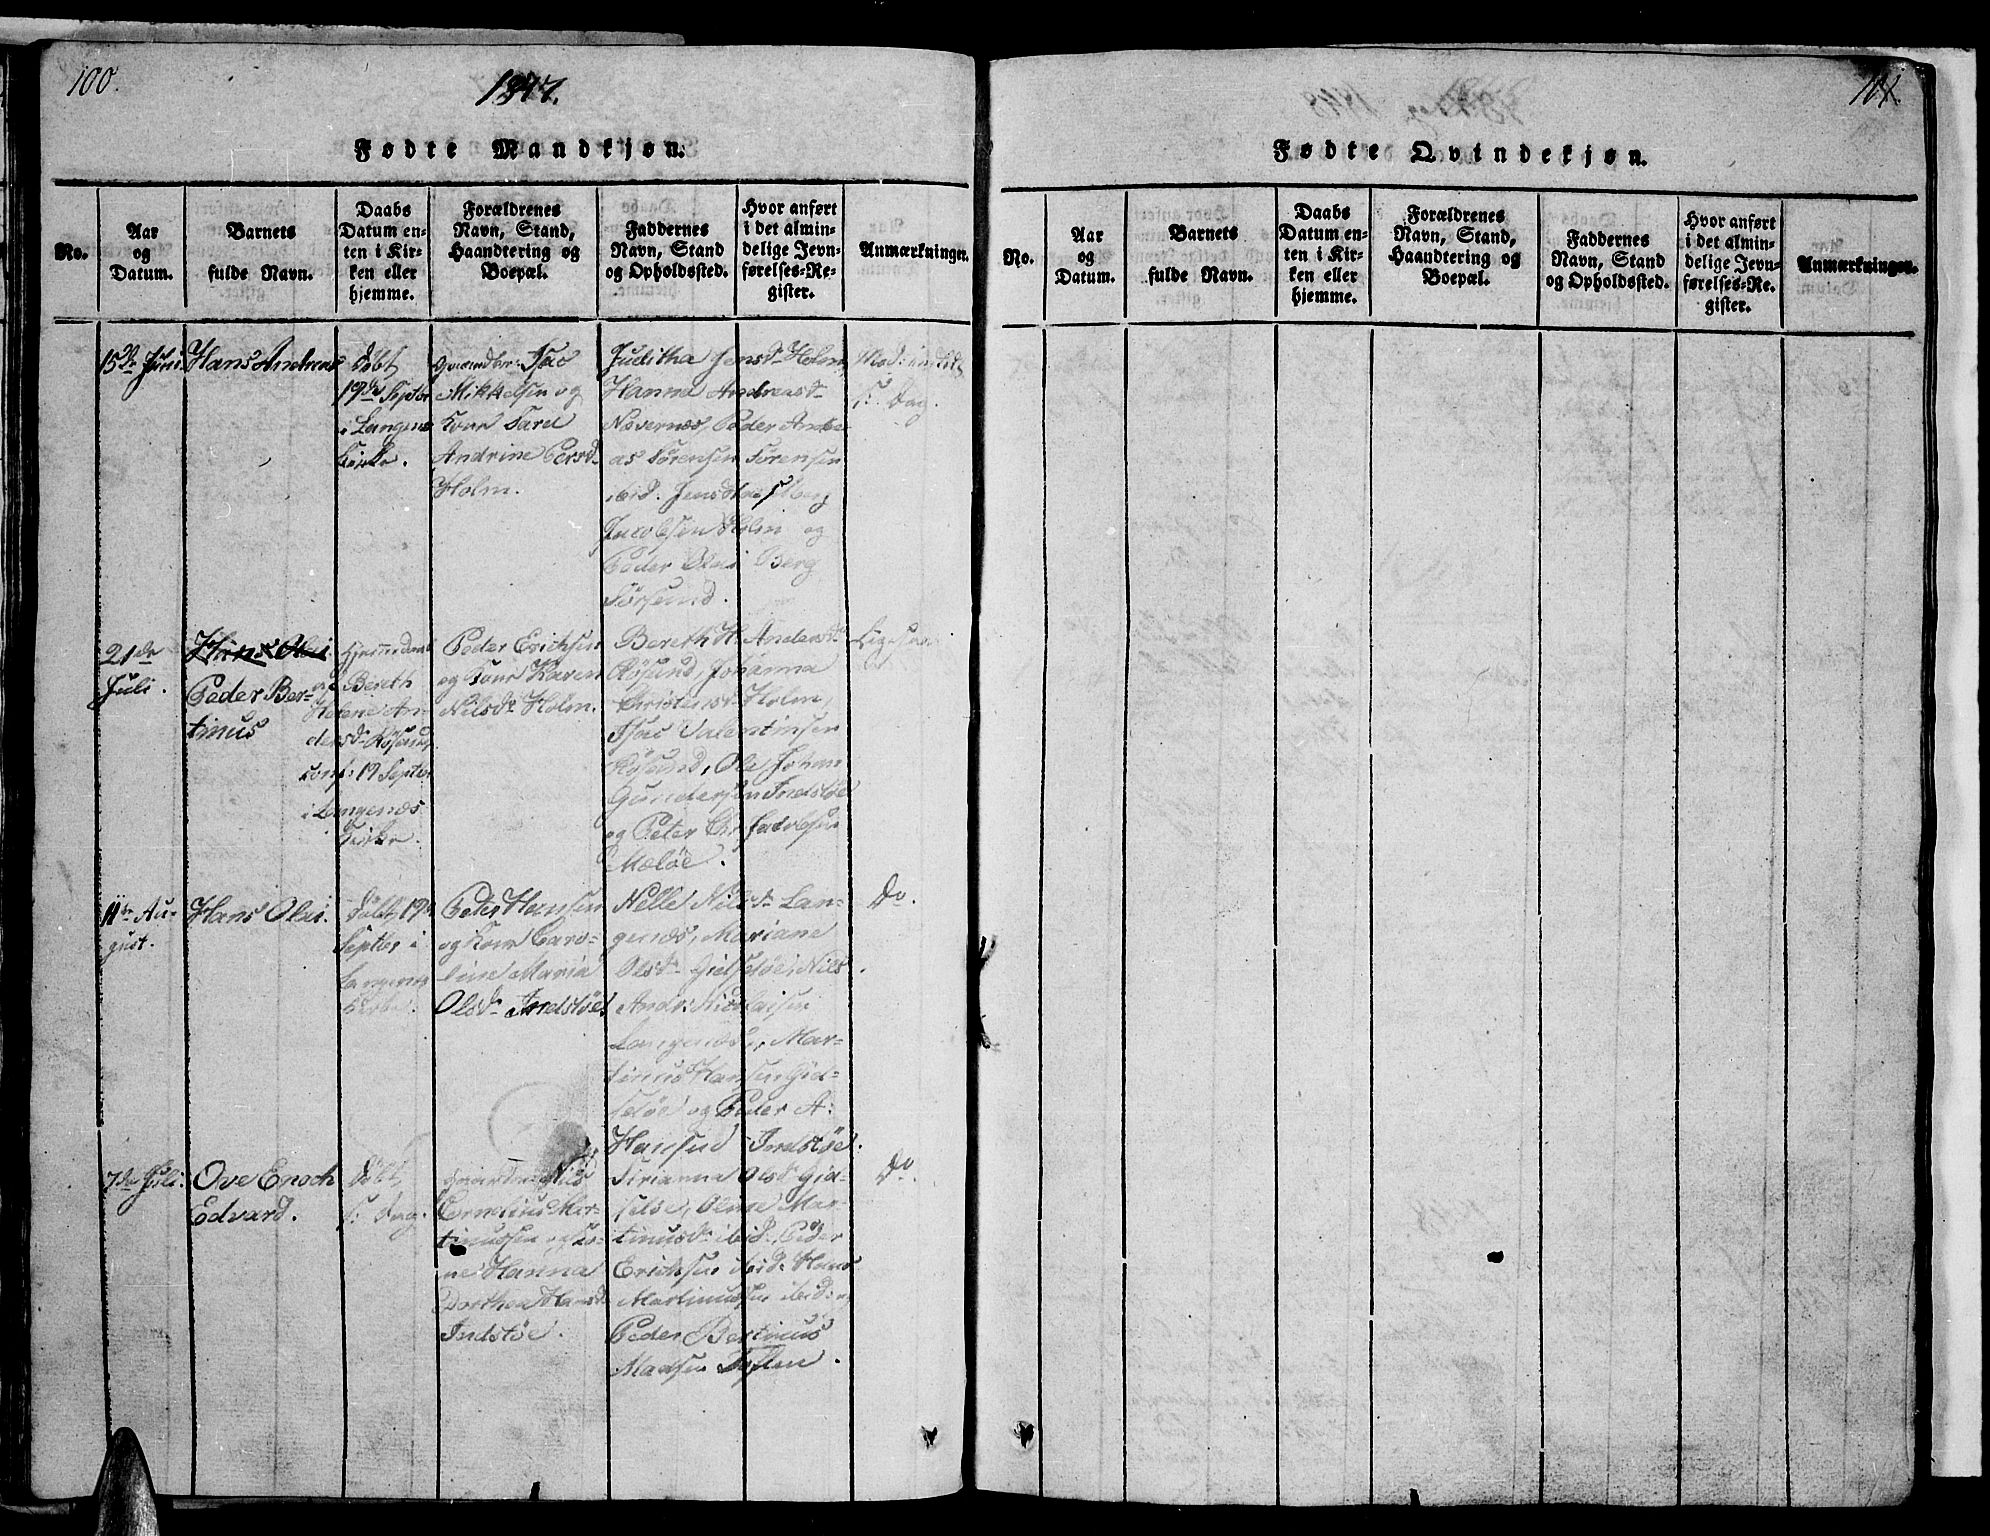 100.
1847.
Fødte Mandkjøn.
No.
Aar
og
Datum.
Barnets
fulde Navn.
Daabs
Datum en-
ten i Kir-
ken eller
hjemme.
Forældrenes
Navn, Stand,
Haandtering og
Boepæl.
Faddernes
Navn, Stand
og Opholdssted.
Hvor anført
i det almin-
delige Jevn-
førelses-Re-
gister.
Anmærkninger.
15de Juni
Hans Andreas
Døbt
19de Septbr
i Langenes
Kirke.
Isac
Mikkelsen og
Kone Sarel
Andrine Persd.
Holm.
Julitha Jensdr Holm,
Hanna Andreasdr
Peder Andre-
as Sørensen
ibid. Jens
Jacobsen Holm og
Peder Olai Berg
Sørsund.
Mod: indtil
s: Dag.
21de
Juli.
Hans Olai
Peder Ber-
tinus
Hjemmedøbt
af Bereth
Helene An-
dersdr Røsund
conf: 19 Septbr
i Langenæs
Kirke.
Peder Erichsen
og Kone Karen
Nilsdr Holm.
Bereth H. Andersdr
Røsund, Johanna
Christensdr Holm,
Isac Valentinsen
Røsund, Ole Johan
Gundersen Indstøe
og Peter Chr Jacobsen
Meløe.
Ligesaa
11te Au-
gust.
Hans Olai.
Døbt 19de
Septbr i
Langenes
Kirke.
Peter Hansen
og Kone Caro-
line Maria
Olsdr Indstøe.
Nelle Nilsdr Lan-
genæs, Mariane
Olsdr Gielsetøe, Nils
Andr: Nicolaisen
Langenæs, Mar-
tinus Hansen Gid-
setøe og Peder A:
Hansen Indstøe.
Do.
7de Juli.
Ove Enoch
Edvard.
Døbt
s: Dag.
Nils
Cornelius Mar-
tinussen og Ko-
ne Hanna
Dorthea Hansdr
Indstøe.
Sirianna Olsdr Gid-
setøe, Oline Mar-
tinusdr ibid., Peder
Erichsen ibid. Hans
Martinussen ibid: og
Peder Bertinus
Madsen Toften.
Do.
101.
Fødte Qvindekjøn.
No.
Aar
og
Datum.
Barnets
fulde Navn.
Daabs
Datum en-
ten i Kir-
ken eller
hjemme.
Forældrenes
Navn, Stand,
Haandtering og
Boepæl.
Faddernes
Navn, Stand
og Opholdssted.
Hvor anført
i det almin-
delige Jevn-
førelses-Re-
gister.
Anmærkninger.